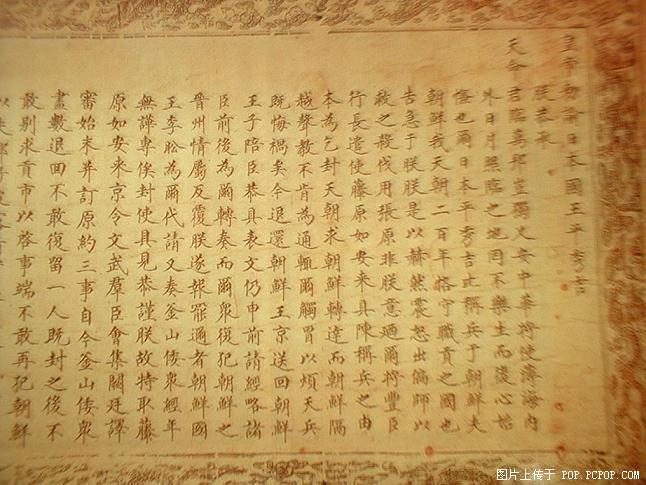 皇帝勑諭日本國王平秀吉
朕恭承
天命君臨萬邦豈獨乂安中華將使薄海內
外日月照臨之地罔不樂生而後心始
慊也爾日本平秀吉比稱兵于朝鮮夫
朝鮮我天朝二百年恪守職貢之國也
告急于朕朕是以赫然震怒出偏師以
救之殺伐用張原非朕意迺爾將豐臣
行長遣使藤原如安來具陳稱兵之由
本為乞封天朝求朝鮮轉達而朝鮮隔
越聲教不肯為通輒爾觸冒以煩天兵
既悔禍矣今退還朝鮮王京送回朝鮮
王子陪臣恭具表文仍申前請經略諸
臣前後為爾轉奏而爾衆復犯朝鮮之
晉州情屬反覆朕遂報罷邇者朝鮮國
王李昖為爾代請又奏釜山倭衆經年
無譁專俟封使具見恭謹朕故特取藤
原如安來京令文武羣臣會集闕廷譯
審始末并訂原約三事自今釜山倭衆
盡數退回不敢復留一人既封之後不
敢别求貢市以啓事端不敢再犯朝鮮
图片上传于 POP.PCPOP.COM